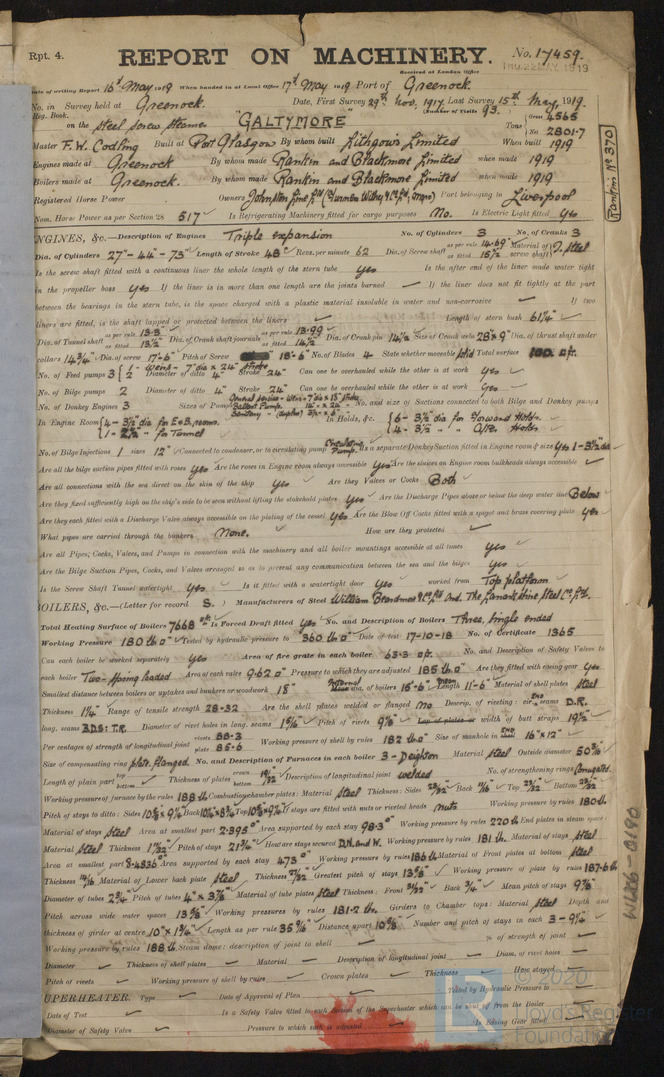 Rpt. 4.
REPORT ON MACHINERY.
No. 17459.
Received at London Office
THU. 22 MAY 1919
Date of writing Report 16th May 1919 When handed in at Local Office 17th May 1919 Port of Greenock.
No. in Survey held at Greenock. Date, First Survey 29th Nov. 1917 Last Survey 15th May, 1919.
Reg. Book. (Number of Visits 93.
on the Steel Screw Steamer "GALTYMORE" Tons Gross 4565 Net 2801.7
Master F.W. Codling Built at Port Glasgow By whom built Lithgows Limited When built 1919
Engines made at Greenock By whom made Rankin and Blackmore Limited when made 1919
Boilers made at Greenock. By whom made Rankin and Blackmore Limited when made 1919
Registered Horse Power Owners Johnston Line Ltd Port belonging to Liverpool
Nom. Horse Power as per Section 28 517 Is Refrigerating Machinery fitted for cargo purposes No. Is Electric Light fitted Yes
Rankin, No 370
ENGINES, &c.—Description of Engines Triple expansion No. of Cylinders 3 No. of Cranks 3
Dia. of Cylinders 27"-44"-73" Length of Stroke 48" Revs. per minute 62 Dia. of Screw shaft as per rule 14.69" as fitted 15 1/2" Material of screw shaft I. Steel
Is the screw shaft fitted with a continuous liner the whole length of the stern tube yes Is the after end of the liner made water tight
in the propeller boss yes If the liner is in more than one length are the joints burned — If the liner does not fit tightly at the part
between the bearings in the stern tube, is the space charged with a plastic material insoluble in water and non-corrosive — If two
liners are fitted, is the shaft lapped or protected between the liners — Length of stern bush 61 1/4"
Dia. of Tunnel shaft as per rule 13.3 as fitted 13 1/2" Dia. of Crank shaft journals as per rule 13.99 as fitted 14 1/2" Dia. of Crank pin 14 1/2" Size of Crank webs 28"x9" Dia. of thrust shaft under
collars 14 3/4" Dia. of screw 17'-6" Pitch of Screw 18'-6" No. of Blades 4 State whether moveable solid Total surface 100 sq. ft.
No. of Feed pumps 3 Diameter of ditto 4" Stroke 24" Can one be overhauled while the other is at work yes
No. of Bilge pumps 2 Diameter of ditto 4" Stroke 24" Can one be overhauled while the other is at work yes
No. of Donkey Engines 3 Sizes of Pumps No. and size of Suctions connected to both Bilge and Donkey pumps
In Engine Room 4 - 3 1/2" dia for E & B. rooms. In Holds, &c. 6 - 3 1/2" dia for Forward Holds.
1 - 2 1/2" for Tunnel 4 - 3 1/2" " " Aft. Holds
No. of Bilge Injections 1 sizes 12" Connected to condenser, or to circulating pump Circulating Pump. Is a separate Donkey Suction fitted in Engine room & size yes 1 - 3 1/2" dia
Are all the bilge suction pipes fitted with roses yes Are the roses in Engine room always accessible yes Are the sluices on Engine room bulkheads always accessible —
Are all connections with the sea direct on the skin of the ship yes Are they Valves or Cocks Both
Are they fixed sufficiently high on the ship's side to be seen without lifting the stokehold plates yes Are the Discharge Pipes above or below the deep water line Below
Are they each fitted with a Discharge Valve always accessible on the plating of the vessel yes Are the Blow Off Cocks fitted with a spigot and brass covering plate yes
What pipes are carried through the bunkers None. How are they protected —
Are all Pipes, Cocks, Valves, and Pumps in connection with the machinery and all boiler mountings accessible at all times yes
Are the Bilge Suction Pipes, Cocks, and Valves arranged so as to prevent any communication between the sea and the bilges yes
Is the Screw Shaft Tunnel watertight yes Is it fitted with a watertight door yes worked from Top platform
BOILERS, &c.—(Letter for record S.) Manufacturers of Steel William Beardmore & Co. Ltd. And. The Lanarkshire Steel Co. Ltd.
Total Heating Surface of Boilers 7668 sq. ft. Is Forced Draft fitted yes No. and Description of Boilers Three, Single ended
Working Pressure 180 lb Tested by hydraulic pressure to 360 lb Date of test 17-10-18 No. of Certificate 1365
Can each boiler be worked separately yes Area of fire grate in each boiler 63.3 sq. ft. No. and Description of Safety Valves to
each boiler Two - Spring loaded Area of each valve 9.62 Pressure to which they are adjusted 185 lb Are they fitted with easing gear yes
Smallest distance between boilers or uptakes and bunkers or woodwork 18" dia. of boilers 15'-6" Length 11'-6" Material of shell plates Steel
Thickness 1 1/4" Range of tensile strength 28-32 Are the shell plates welded or flanged No Descrip. of riveting: cir. seams D.R.
long. seams B.D.S: T.R. Diameter of rivet holes in long. seams 1 5/16" Pitch of rivets 9 1/8" width of butt straps 19 1/2"
Per centages of strength of longitudinal joint rivets 88.3 plate 85.6 Working pressure of shell by rules 182 lb Size of manhole in shell 16"x12"
Size of compensating ring plate flanged No. and Description of Furnaces in each boiler 3 - Deighton Material Steel Outside diameter 50 5/16"
Length of plain part top bottom Thickness of plates crown bottom 19/32" Description of longitudinal joint welded No. of strengthening rings Corrugated.
Working pressure of furnace by the rules 188 lb Combustion chamber plates: Material Steel Thickness: Sides 23/32" Back 11/16" Top 23/32" Bottom 23/32"
Pitch of stays to ditto: Sides If stays are fitted with nuts or riveted heads nuts Working pressure by rules 180 lb
Material of stays Steel Area at smallest part 2.395 Area supported by each stay 98.3 Working pressure by rules 220 lb End plates in steam space
Material Steel Thickness 1 7/32" Pitch of stays 21 3/4" How are stays secured D.N. and W. Working pressure by rules 181 lb. Material of stays Steel
Area at smallest part 8.4336 Area supported by each stay 473 Working pressure by rules 186 lb Material of Front plates at bottom Steel
Thickness Material of Lower back plate Steel Thickness 27/32" Greatest pitch of stays 13 5/8" Working pressure of plate by rules 187.6 lb
Diameter of tubes 2 3/4" Pitch of tubes 4" x 3 7/8" Material of tube plates Steel Thickness: Front Back 3/4" Mean pitch of stays 9 7/8"
Pitch across wide water spaces 13 5/8" Working pressures by rules 181.2 lb. Girders to Chamber tops: Material Steel Depth and
thickness of girder at centre 10" x 1 3/4" Length as per rule 35 Distance apart 10 5/8" Number and pitch of stays in each 3 - 9 1/4"
Working pressure by rules 188 lb. Steam dome: description of joint to shell — % of strength of joint —
Diameter — Thickness of shell plates — Material — Description of longitudinal joint — Diam. of rivet holes —
Pitch of rivets — Working pressure of shell by rules — Crown plates — Thickness — How stayed —
SUPERHEATER. Type — Date of Approval of Plan — Tested by Hydraulic Pressure to —
Date of Test — Is a Safety Valve fitted to each Section of the Superheater which can be shut off from the Boiler —
Diameter of Safety Valve — Pressure to which each is adjusted — Is Easing Gear fitted —
W486-0190
© 2020
Lloyd's Register
Foundation